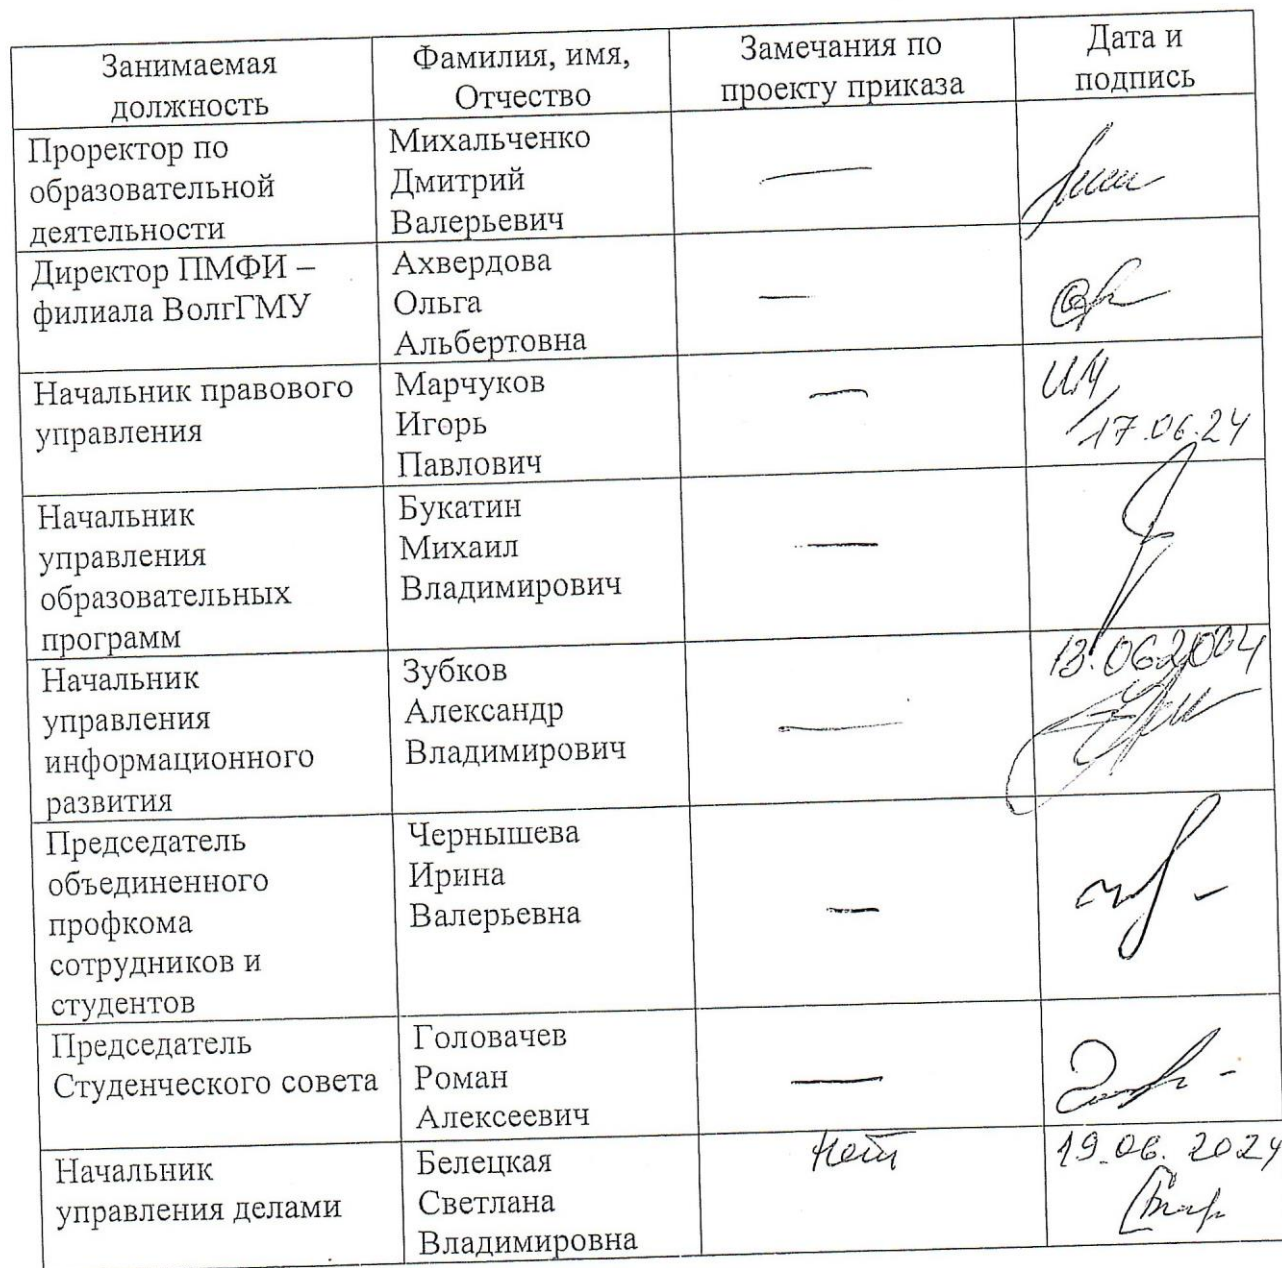 Занимаемая
должность
Фамилия, имя,
Отчество
Замечания по
проекту приказа
Дата и
подпись
Проректор по
образовательной
деятельности
Михальченко
Дмитрий
Валерьевич
Директор ПМФИ –
филиала ВолгГМУ
Ахвердова
Ольга
Альбертовна
Начальник правового
управления
Марчуков
Игорь
Павлович
17.06.24
Начальник
управления
образовательных
программ
Букатин
Михаил
Владимирович
Начальник
управления
информационного
развития
Зубков
Александр
Владимирович
Председатель
объединенного
профкома
сотрудников и
студентов
Чернышева
Ирина
Валерьевна
Председатель
Студенческого совета
Головачев
Роман
Алексеевич
Начальник
управления делами
Белецкая
Светлана
Владимировна
Нет
19.06.2024